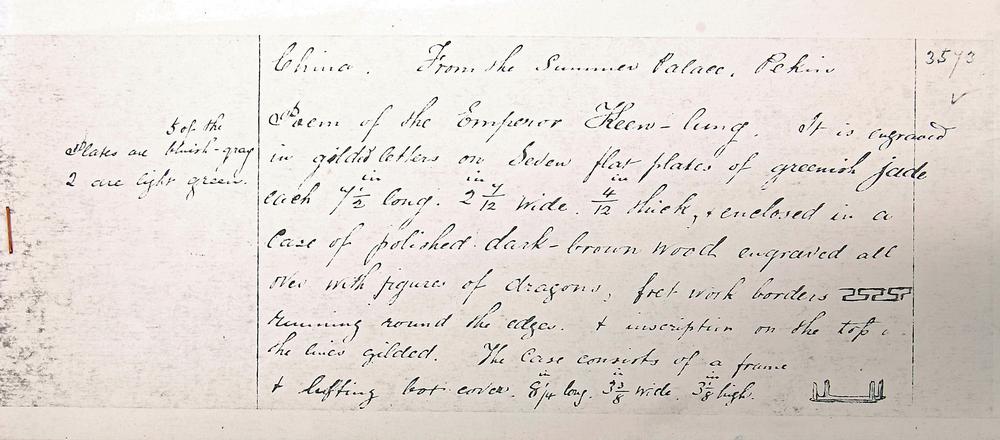 China. From the Summer Palace, Pekin
3573
Poem of the Emperor Keen-lung. It is engraved
5 of the
Plates are bluish-gray
2 are light green.
in gilded letters on Seven flat plates of greenish jade
each 7 1/2 in long. 2 7/12 in wide. 4/12 in thick, & enclosed in a
Case of polished dark-brown wood engraved all
over with figures of dragons, fret work borders
running round the edges. & inscription on the top
the lines gilded. The Case consists of a frame
& lifting box cover. 8 1/4 in long. 3 in wide. 3 1/8 in high.